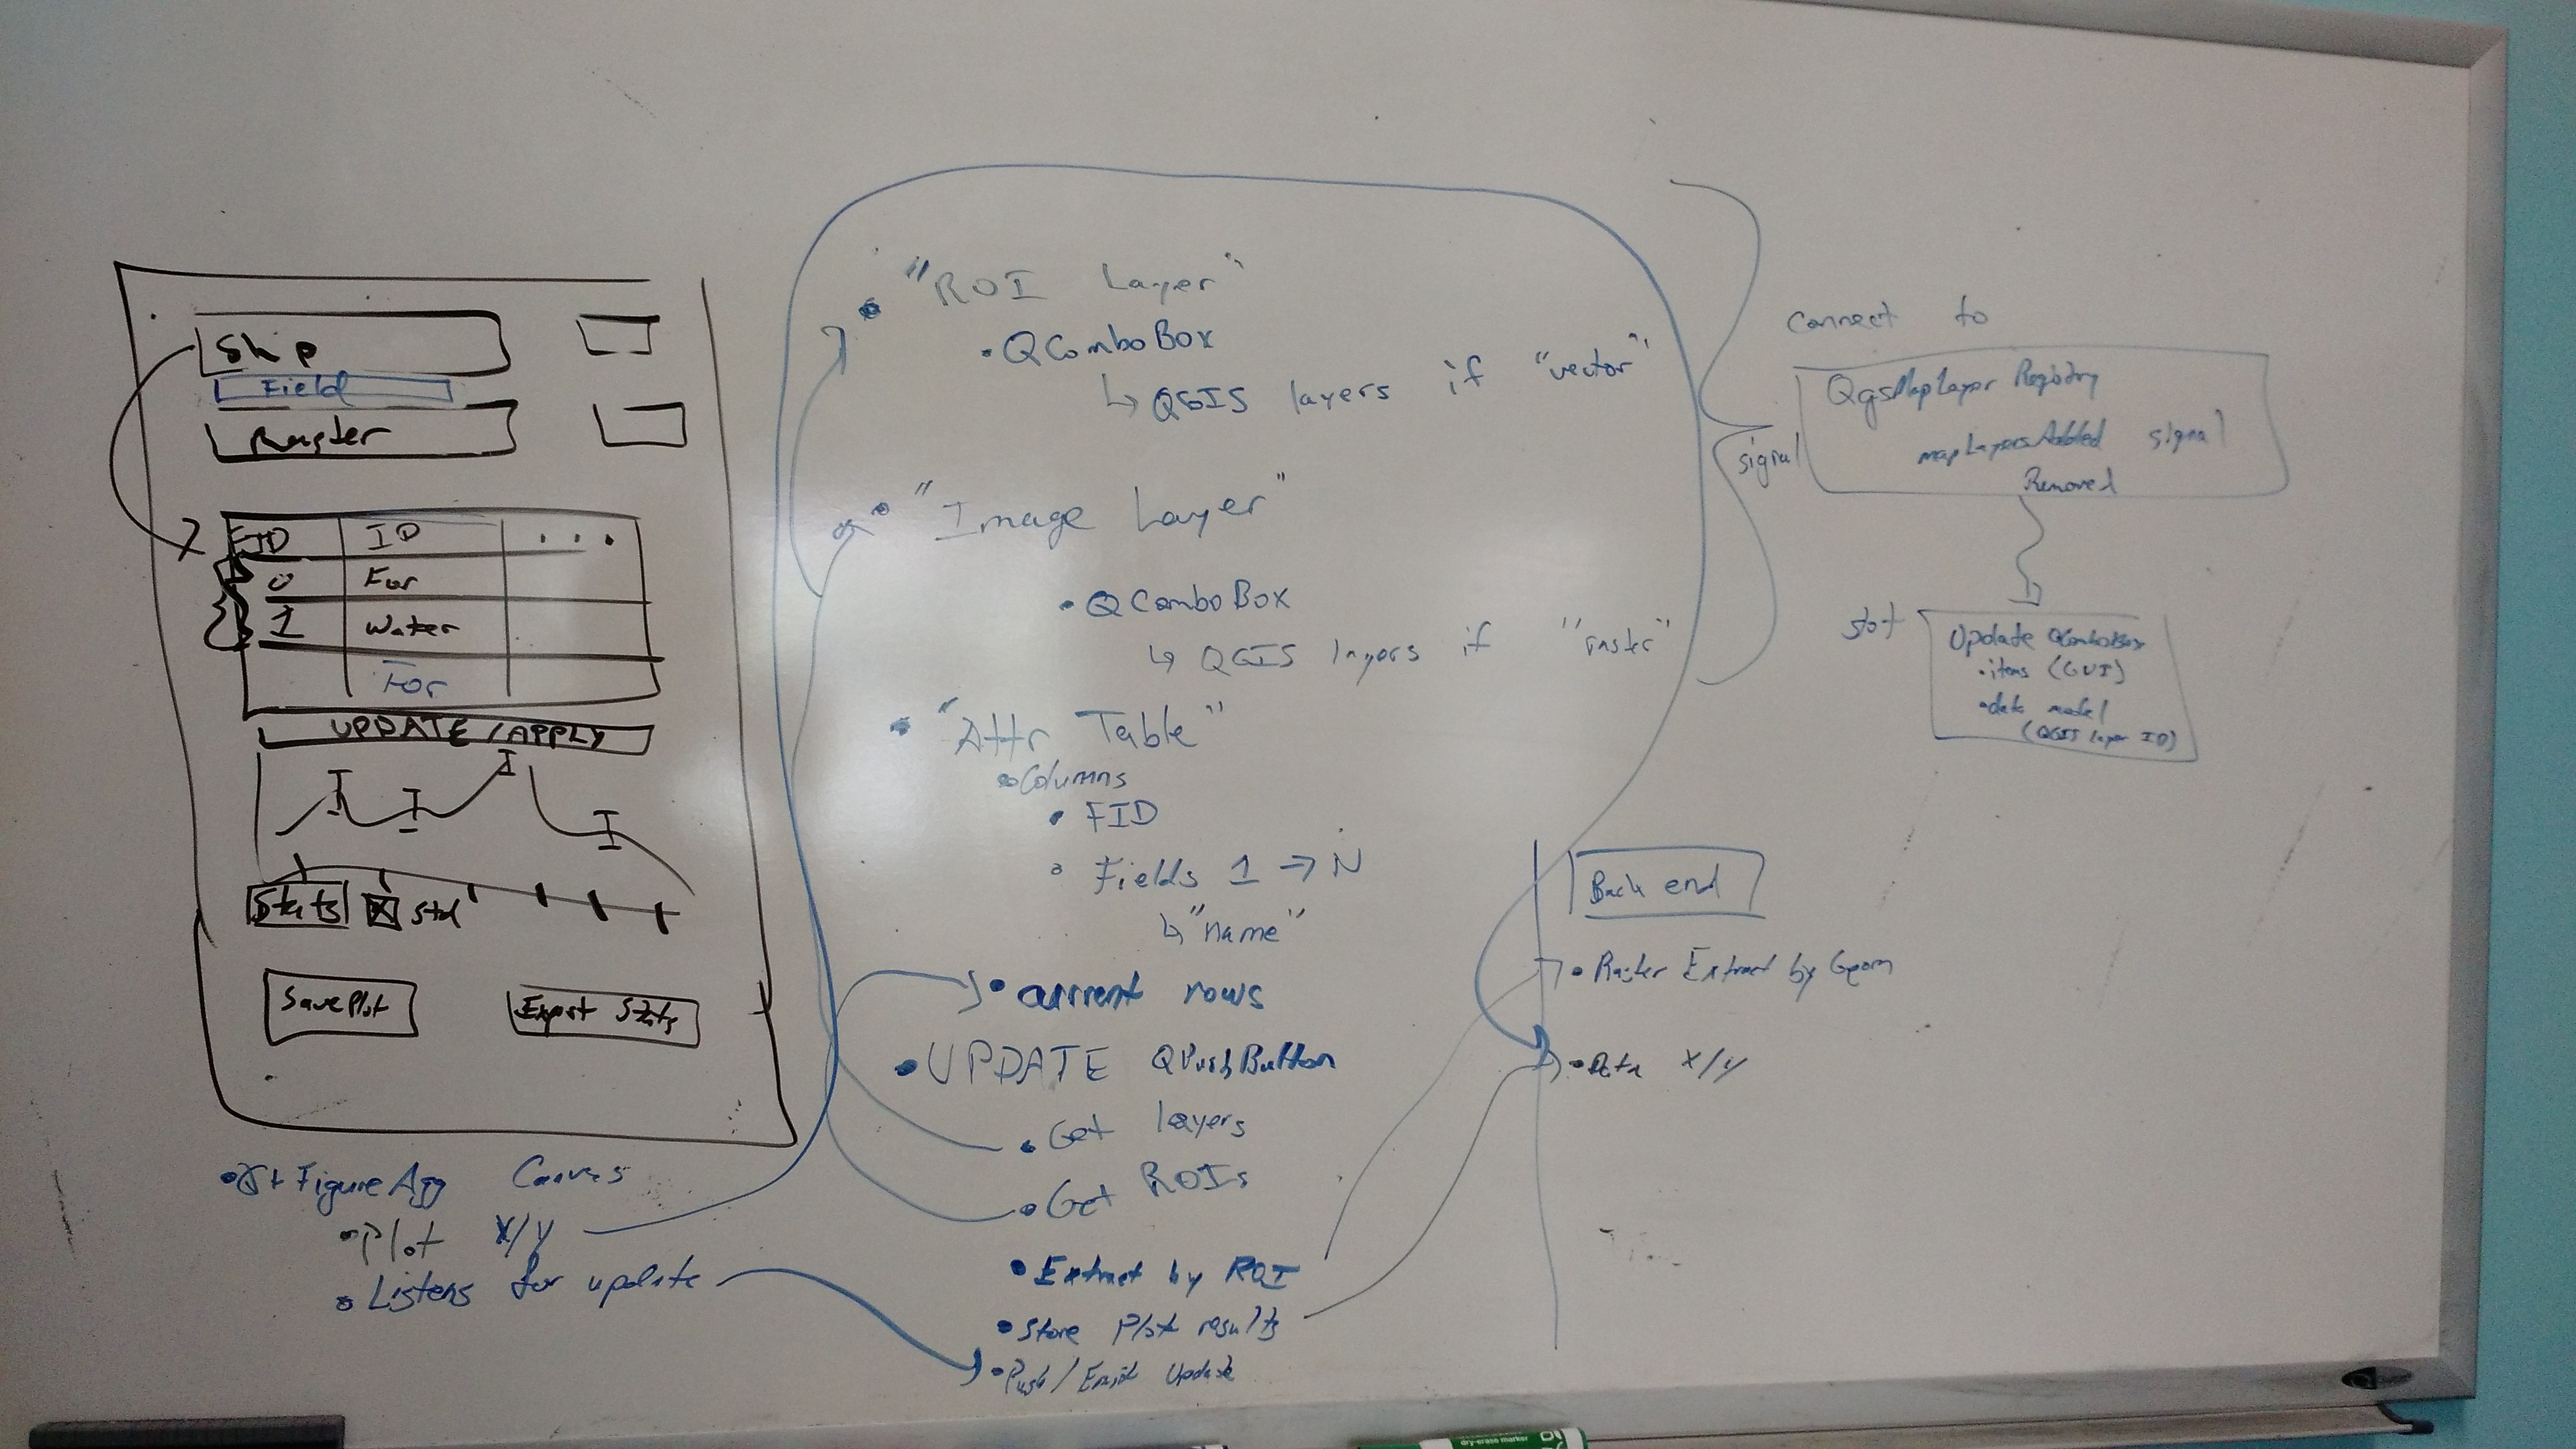 Ship
Field
Raster
FID ID ...
0 For
1 Water
For
UPDATE / APPLY
Stats X Std
Save Plot Export Stats
• Qt FigureAgg Canvas
• Plot X/Y
• Listens for update
• "ROI Layer"
• QComboBox
↳ QGIS layers if "vector"
• "Image Layer"
• QComboBox
↳ QGIS layers if "raster"
• "Attr Table"
• Columns
• FID
• Fields 1 → N
↳ "name"
• current rows
• UPDATE QPushButton
• Get layers
• Get ROIs
• Extract by ROI
• Store Plot results
• Push / Emit Update
Connect to
signal
QgsMapLayer Registry
mapLayersAdded signal
Removed
slot
Update QComboBox
• items (GUI)
• data model
(QGIS layer ID)
Back end
• Raster Extract by Geom
• Data X/Y
dry-erase marker